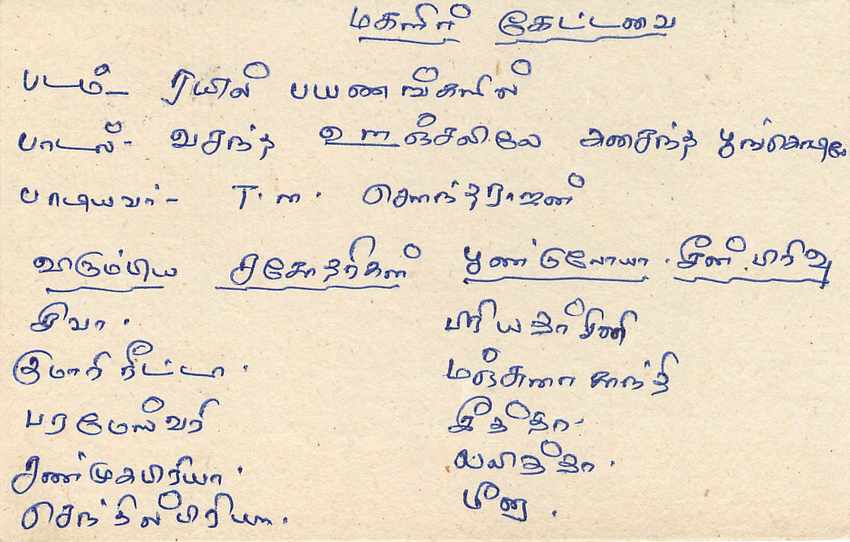 மகளிர் கேட்டவை
படம் - ரயில் பயணங்களில்
பாடல் - வசந்த ஊஞ்சலிலே அசைந்த பூங்கொடியே
பாடியவர் - T.M. சௌந்தரராஜன்
விரும்பிய சகோதரிகள் பூண்டுலோயா. சீன் பிரிவு
சிவா.
குமாரி நீட்டா.
பரமேஸ்வரி
சண்முகபிரியா.
செந்தில்பிரியா.
பிரியதர்சினி
மஞ்சுளா சாந்தி
ஜீதா.
லலித்தா.
மீனு.